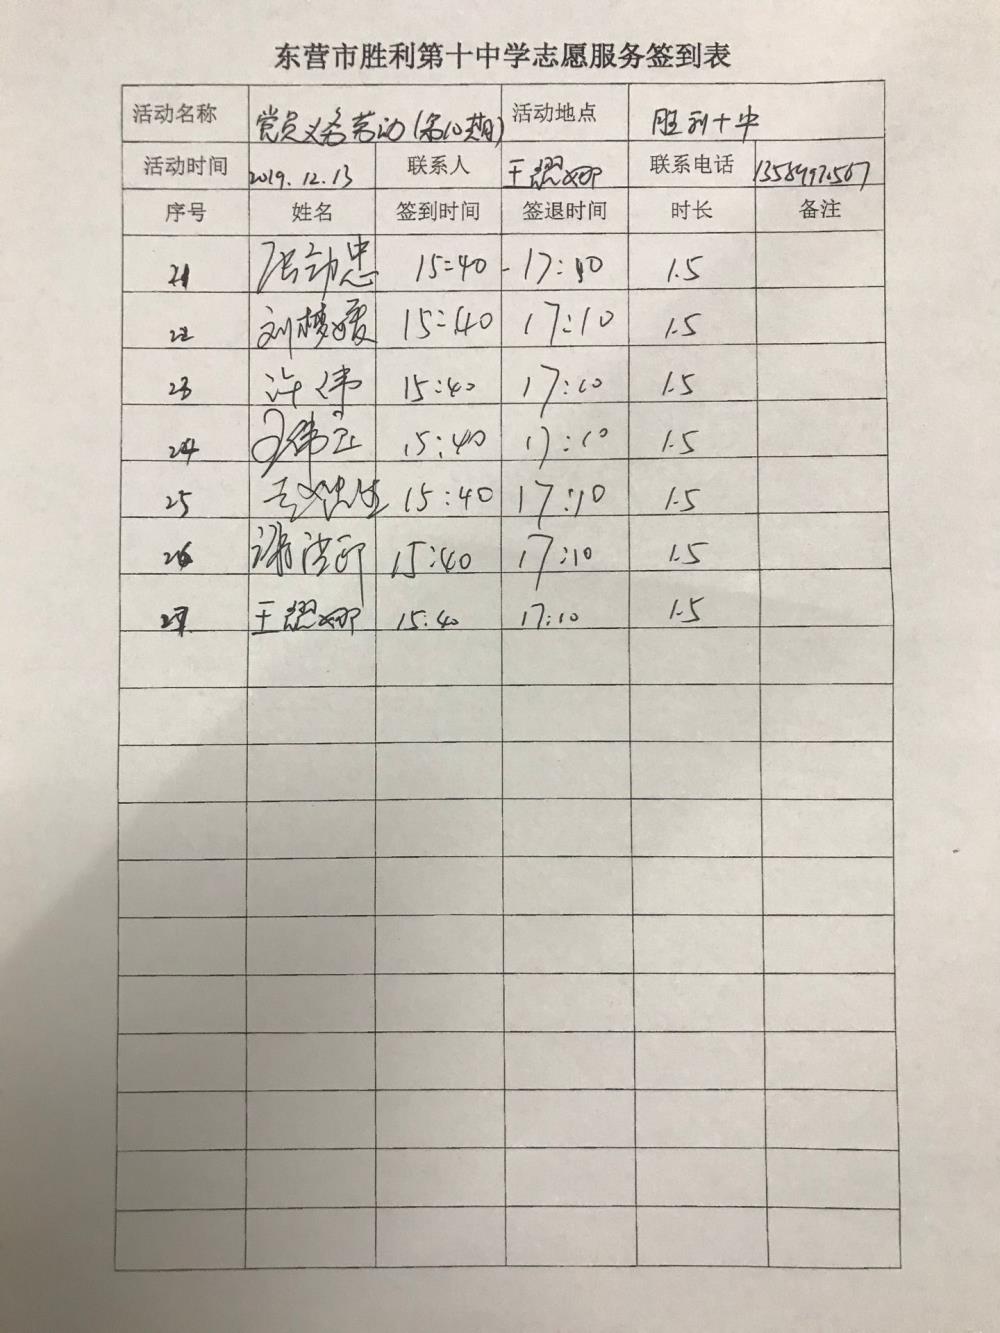 东营市胜利第十中学志愿服务签到表
活动名称 党员义务劳动(第10期) 活动地点 胜利十中
活动时间 2019.12.13 联系人 王 娜 联系电话
序号 姓名 签到时间 签退时间 时长 备注
21 15:40 17:10 1.5
22 刘梦媛 15:40 17:10 1.5
23 许伟 15:40 17:10 1.5
24 15:40 17:10 1.5
25 15:40 17:10 1.5
26 15:40 17:10 1.5
27 王 娜 15:40 17:10 1.5